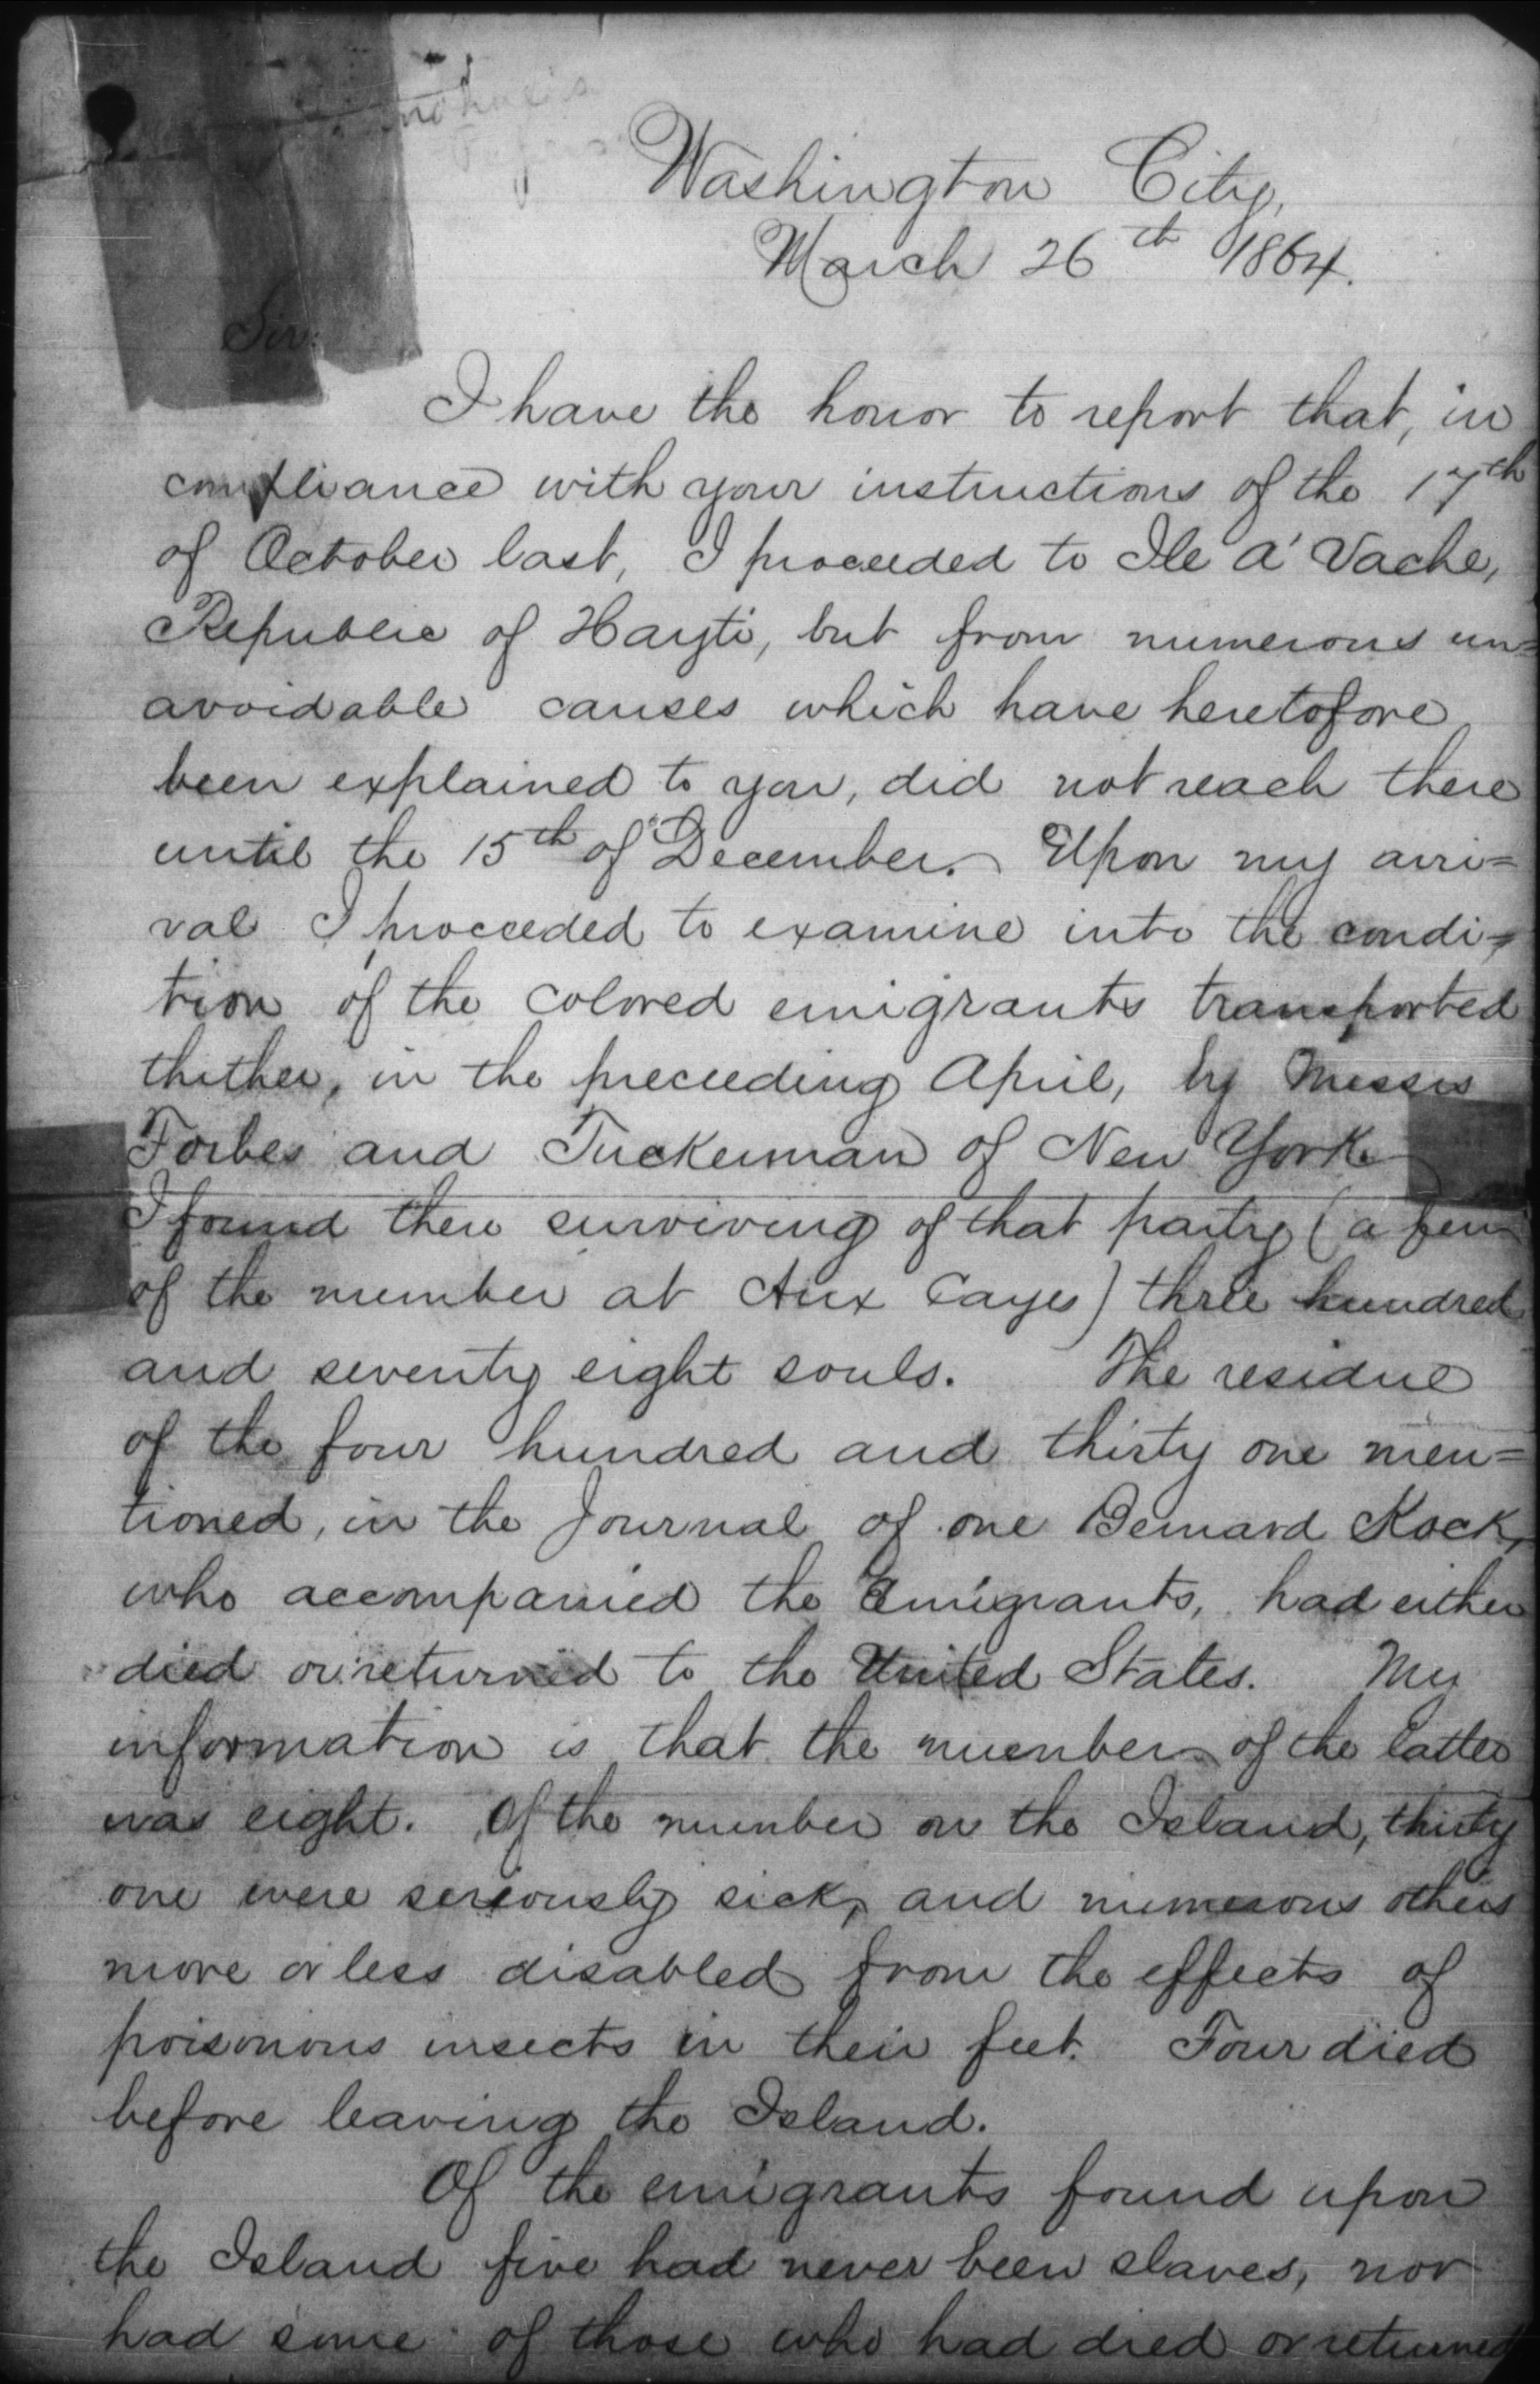 Washington City,
March 26th 1864.
Sir:
I have the honor to report that, in
compliance with your instructions of the 17th
of October last, I proceeded to Ile A' Vache,
Republic of Hayti, but from numerous un=
avoidable causes which have heretofore
been explained to you, did not reach there
until the 15th of December. Upon my arri=
val I proceeded to examine into the condi=
tion of the colored emigrants transported
thither, in the preceeding April, by Messrs
Forbes and Tuckerman of New York
I found there surviving of that party (a few
of the number at Aux Cayes) three hundred
and seventy eight souls. The residue
of the four hundred and thirty one men=
tioned, in the Journal of one Bernard Kock,
who accompanied the Emigrants, had either
died or returned to the United States. My
information is that the number of the latter
was eight. Of the number on the Island, thirty
one were seriously sick, and numerous others
more or less disabled from the effects of
poisonous insects in their feet. Four died
before leaving the Island.
Of the emigrants found upon
the Island five had never been slaves, nor
had some of those who had died or returned